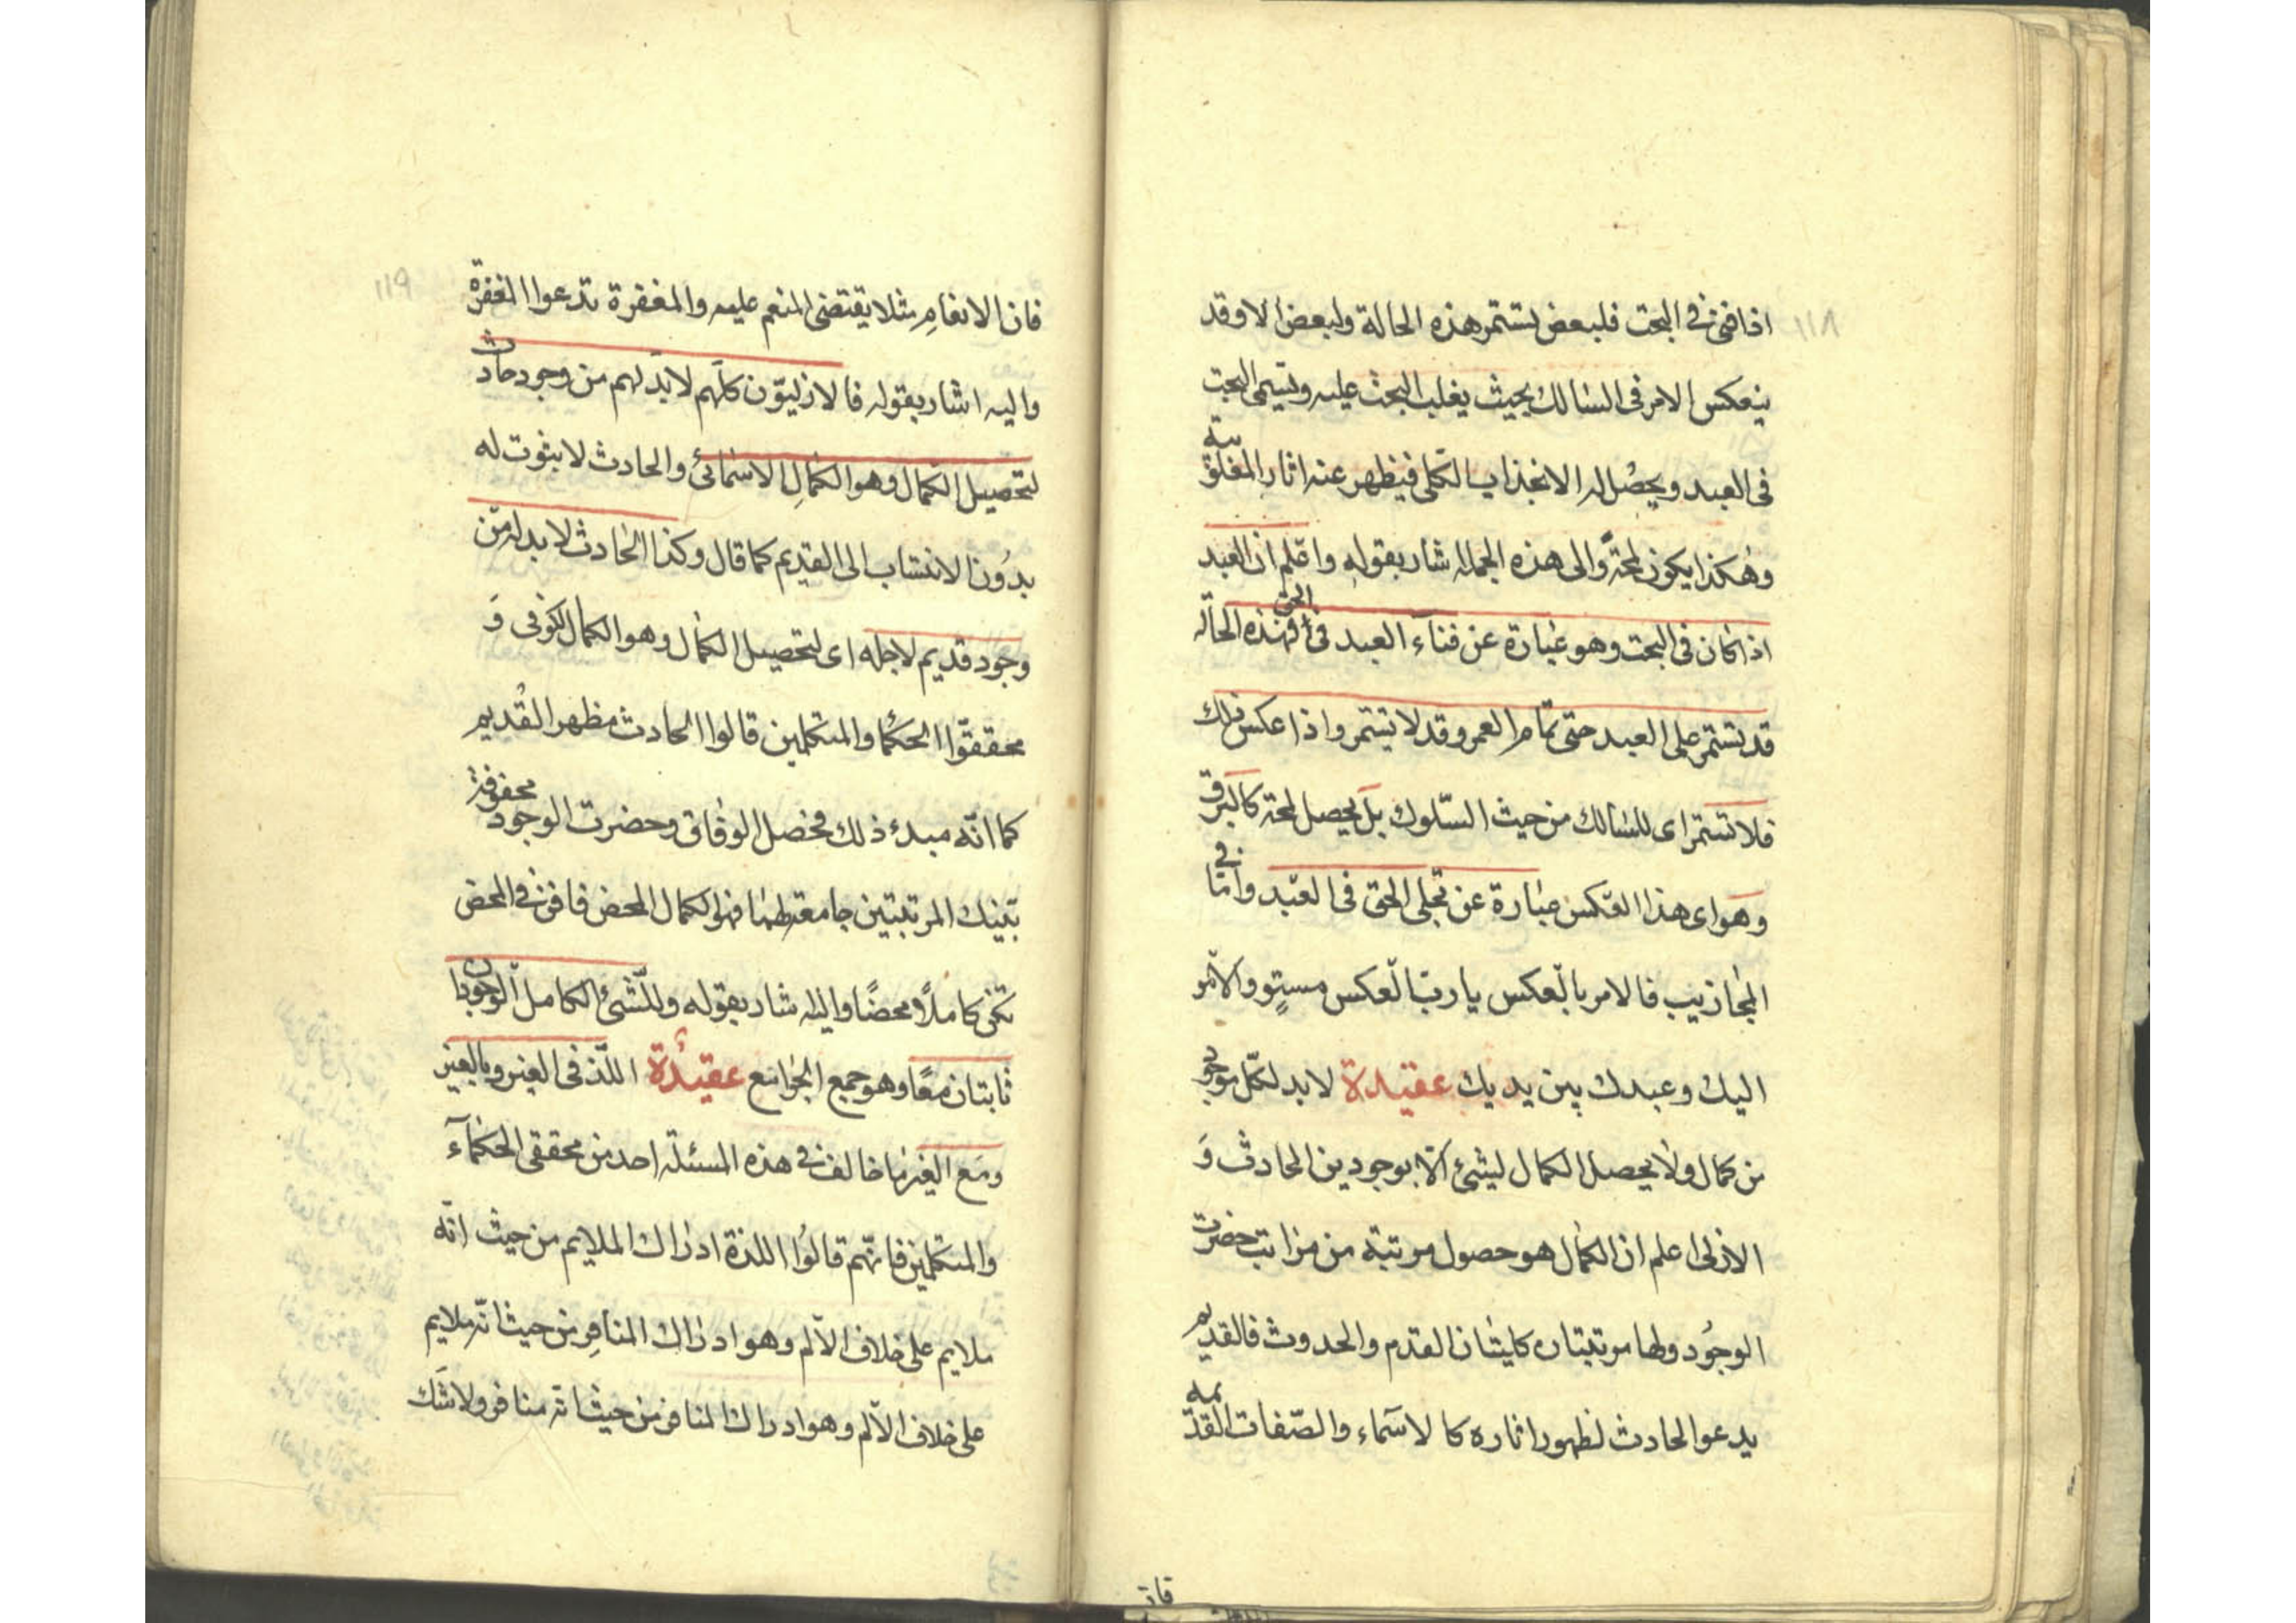 ١١٨
اذا فنى فى البحت فلبعض تستمر هذه الحالة ولبعض لا وقد
ينعكس الامر فى السالك بحيث يغلب البحث عليه ويتسمى البحت
فى العبد ويحصُل له الانجذاب الكلى فيظهر عنه اثار المغلوبية
وهٰكذا يكون لمحةً والى هذه الجملة شار بقوله واعلم ان العبد
اذا كان فى البحت وهو عبارة عن فنآء العبد فى الحق فهذه الحالة
قد تستمر على العبد حتى تمام العمر وقد لا تستمر واذا عكس ذلك
فلا تستمر اى للسالك من حيث السّلوك بل يحصل لمحة كالبرق
وهو اى هذا العكس عبارة عن تجلى الحق فى العبد وامّا فى
المجازيب فالامر بالعكس يا ربّ العكس مستوٍ والامر
اليك وعبدك بين يديك عقيدة لابد لكلّ موجود
من كمال ولا يحصل الكمال لشئ الّا بوجودين الحادث وَ
الازلى اعلم ان الكمال هو حصول مرتبة من مراتب حضرت
الوجُود ولها مرتبتان كليتان القدم والحدوث فالقديم
يدعو الحادث لظهور اثاره كالاسماء والصّفات القديمه
فان
١١٩
فان الانعامِ مثلا يقتضى المنعم عليه والمغفرة تدعوا المغفرة
واليه اشار بقوله فالازليّون كلّهم لابدّ لهم من وجود حادث
لتحصيل الكمال وهو الكمالِ الاسمائى والحادث لا ثبوت له
بدُون الانتساب الى القديم كما قال وكذا الحادث لابد له من
وجود قديم لاجله اى لتحصيل الكمال وهو الكمال الكونى وَ
محققوّا الحكما والمتكلمين قالوا الحادث مظهر القُديم
كما انّه مبدء ذلك فحصل الوفاق وحضرت الوجود محفوفة
بتينك المرتبتين جامعة لهما فهو الكمال المحض فافن فى المحض
تكن كاملاً ومحضًا واليه شار بقوله وللشّئ الكامل الوجودان
ثابتان معًا وهو جمع الجوامع عقيدة اللّذ فى الغير وبالغير
ومَع الغير ما خالف فى هذه المسئلة احد من محققى الحكمآء
والمتكلمين فانّهم قالوُا اللذة ادراك الملايم من حيث انّه
ملايم على خلاف الالم وهو ادراك المنافِر من حيث انّه ملايم
على خلاف الالم وهو ادراك المنافر من حيث انه منافر ولا شَك